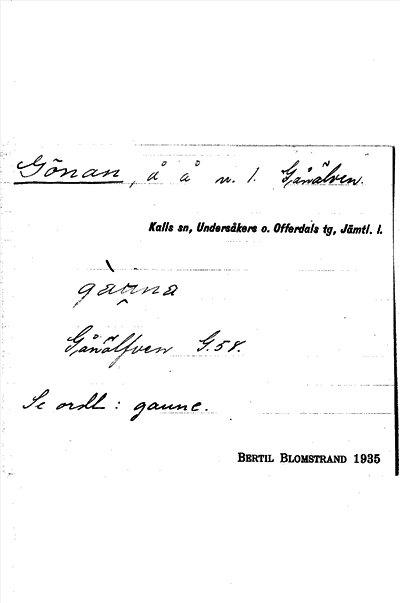 Gönan, å å n. l. Gånälven.
Kalls sn, Undersåkers o. Offerdals tg, Jämtl. l.
gàu̯na
Gånälfven G.58.
Se ordl : gaune.
BERTIL BLOMSTRAND 1935